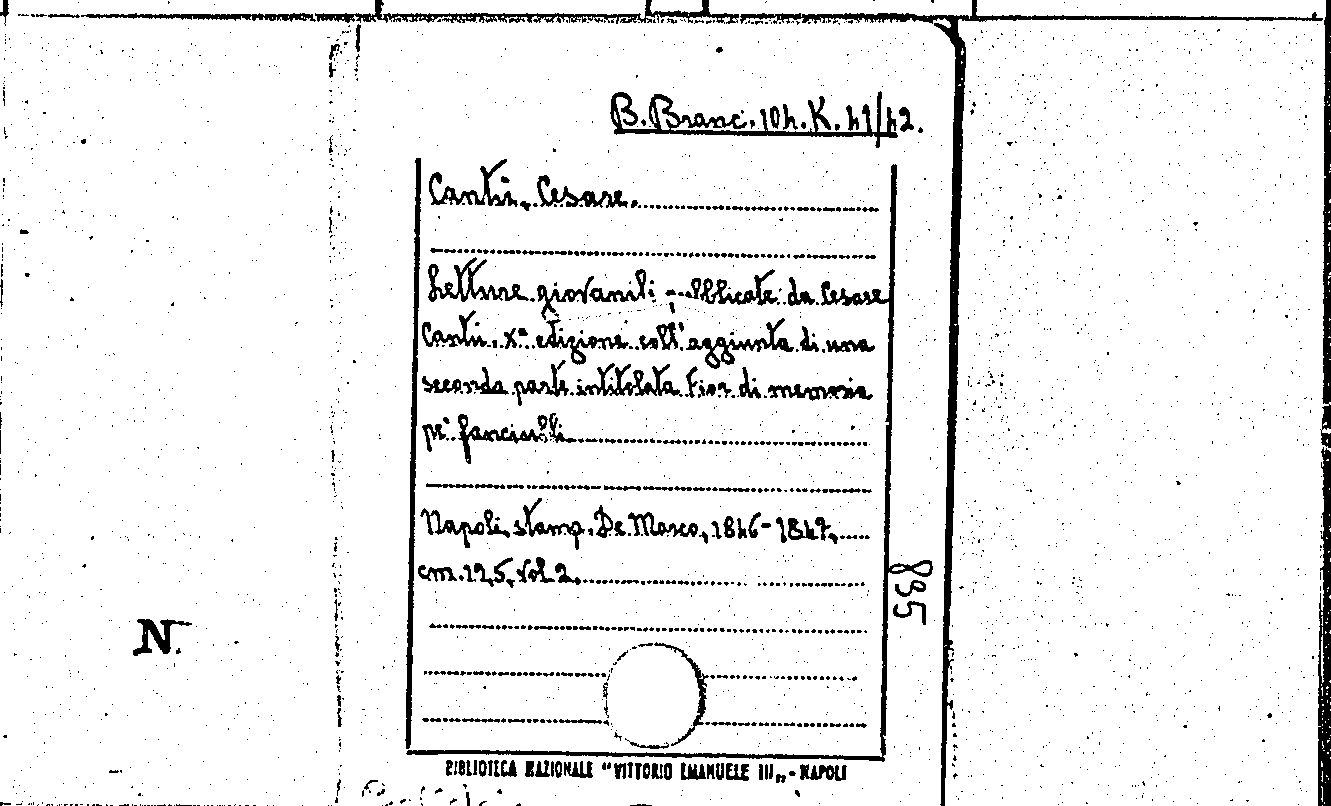 B. Branc. 104. K. 41/42.
Cantù, Cesare.
Letture giovanili pubblicate da Cesare
Cantù. Xª edizione coll' aggiunta di una
seconda parte intitolata Fior di memoria
pe' fanciulli
Napoli, stamp. De Marco, 1846-1847,
cm. 12,5, vol. 2.
895
N.
BIBLIOTECA NAZIONALE "VITTORIO EMANUELE III„ - NAPOLI